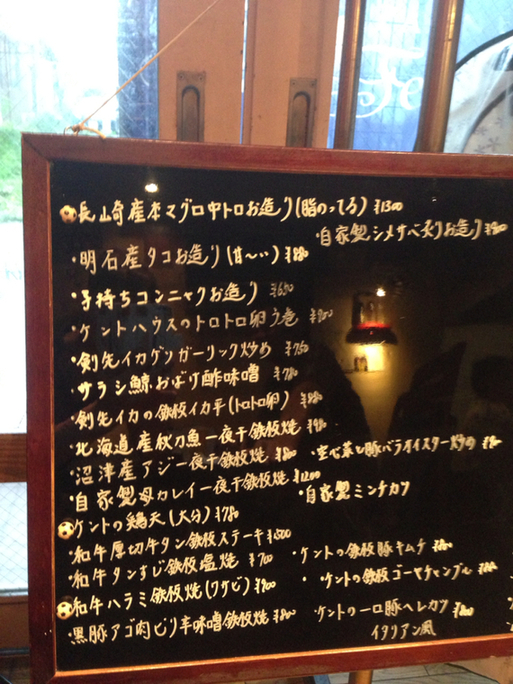 長崎産本マグロ中トロお造り(脂のってる) ¥1300
・自家製シメサバ炙りお造り
・明石産タコお造り(甘〜い) ¥880
・子持ちコンニャクお造り ¥650
・ケントハウスのトロトロ卵う巻 ¥900
・剣先イカゲソガーリック炒め ¥750
・サラシ鯨おばけ酢味噌 ¥780
・剣先イカの鉄板イカ平(トロトロ卵) ¥880
・北海道産秋刀魚一夜干鉄板焼
・沼津産アジ一夜干鉄板焼 ¥800
・空心菜と豚バラオイスター炒め
・自家製母カレイ一夜干鉄板焼 ¥1200
・自家製ミンチカツ
ケントの鶏天(大分) ¥780
・和牛厚切牛タン鉄板ステーキ ¥1500
・和牛タンすじ鉄板塩焼 ¥700
・ケントの鉄板豚キムチ
和牛ハラミ鉄板焼(ワサビ) ¥900
・ケントの鉄板ゴーヤチャンプル
・黒豚アゴ肉ピリ辛味噌鉄板焼 ¥800
・ケントの一口豚ヘレカツ
イタリアン風